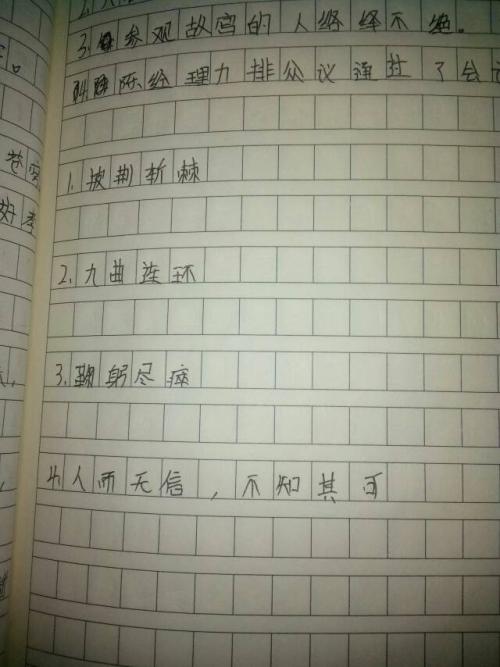 3.参观故宫的人络绎不绝。
陈经理力排众议通过了会
1.披荆斩棘
2.九曲连环
3.鞠躬尽瘁
4.人而无信,不知其可